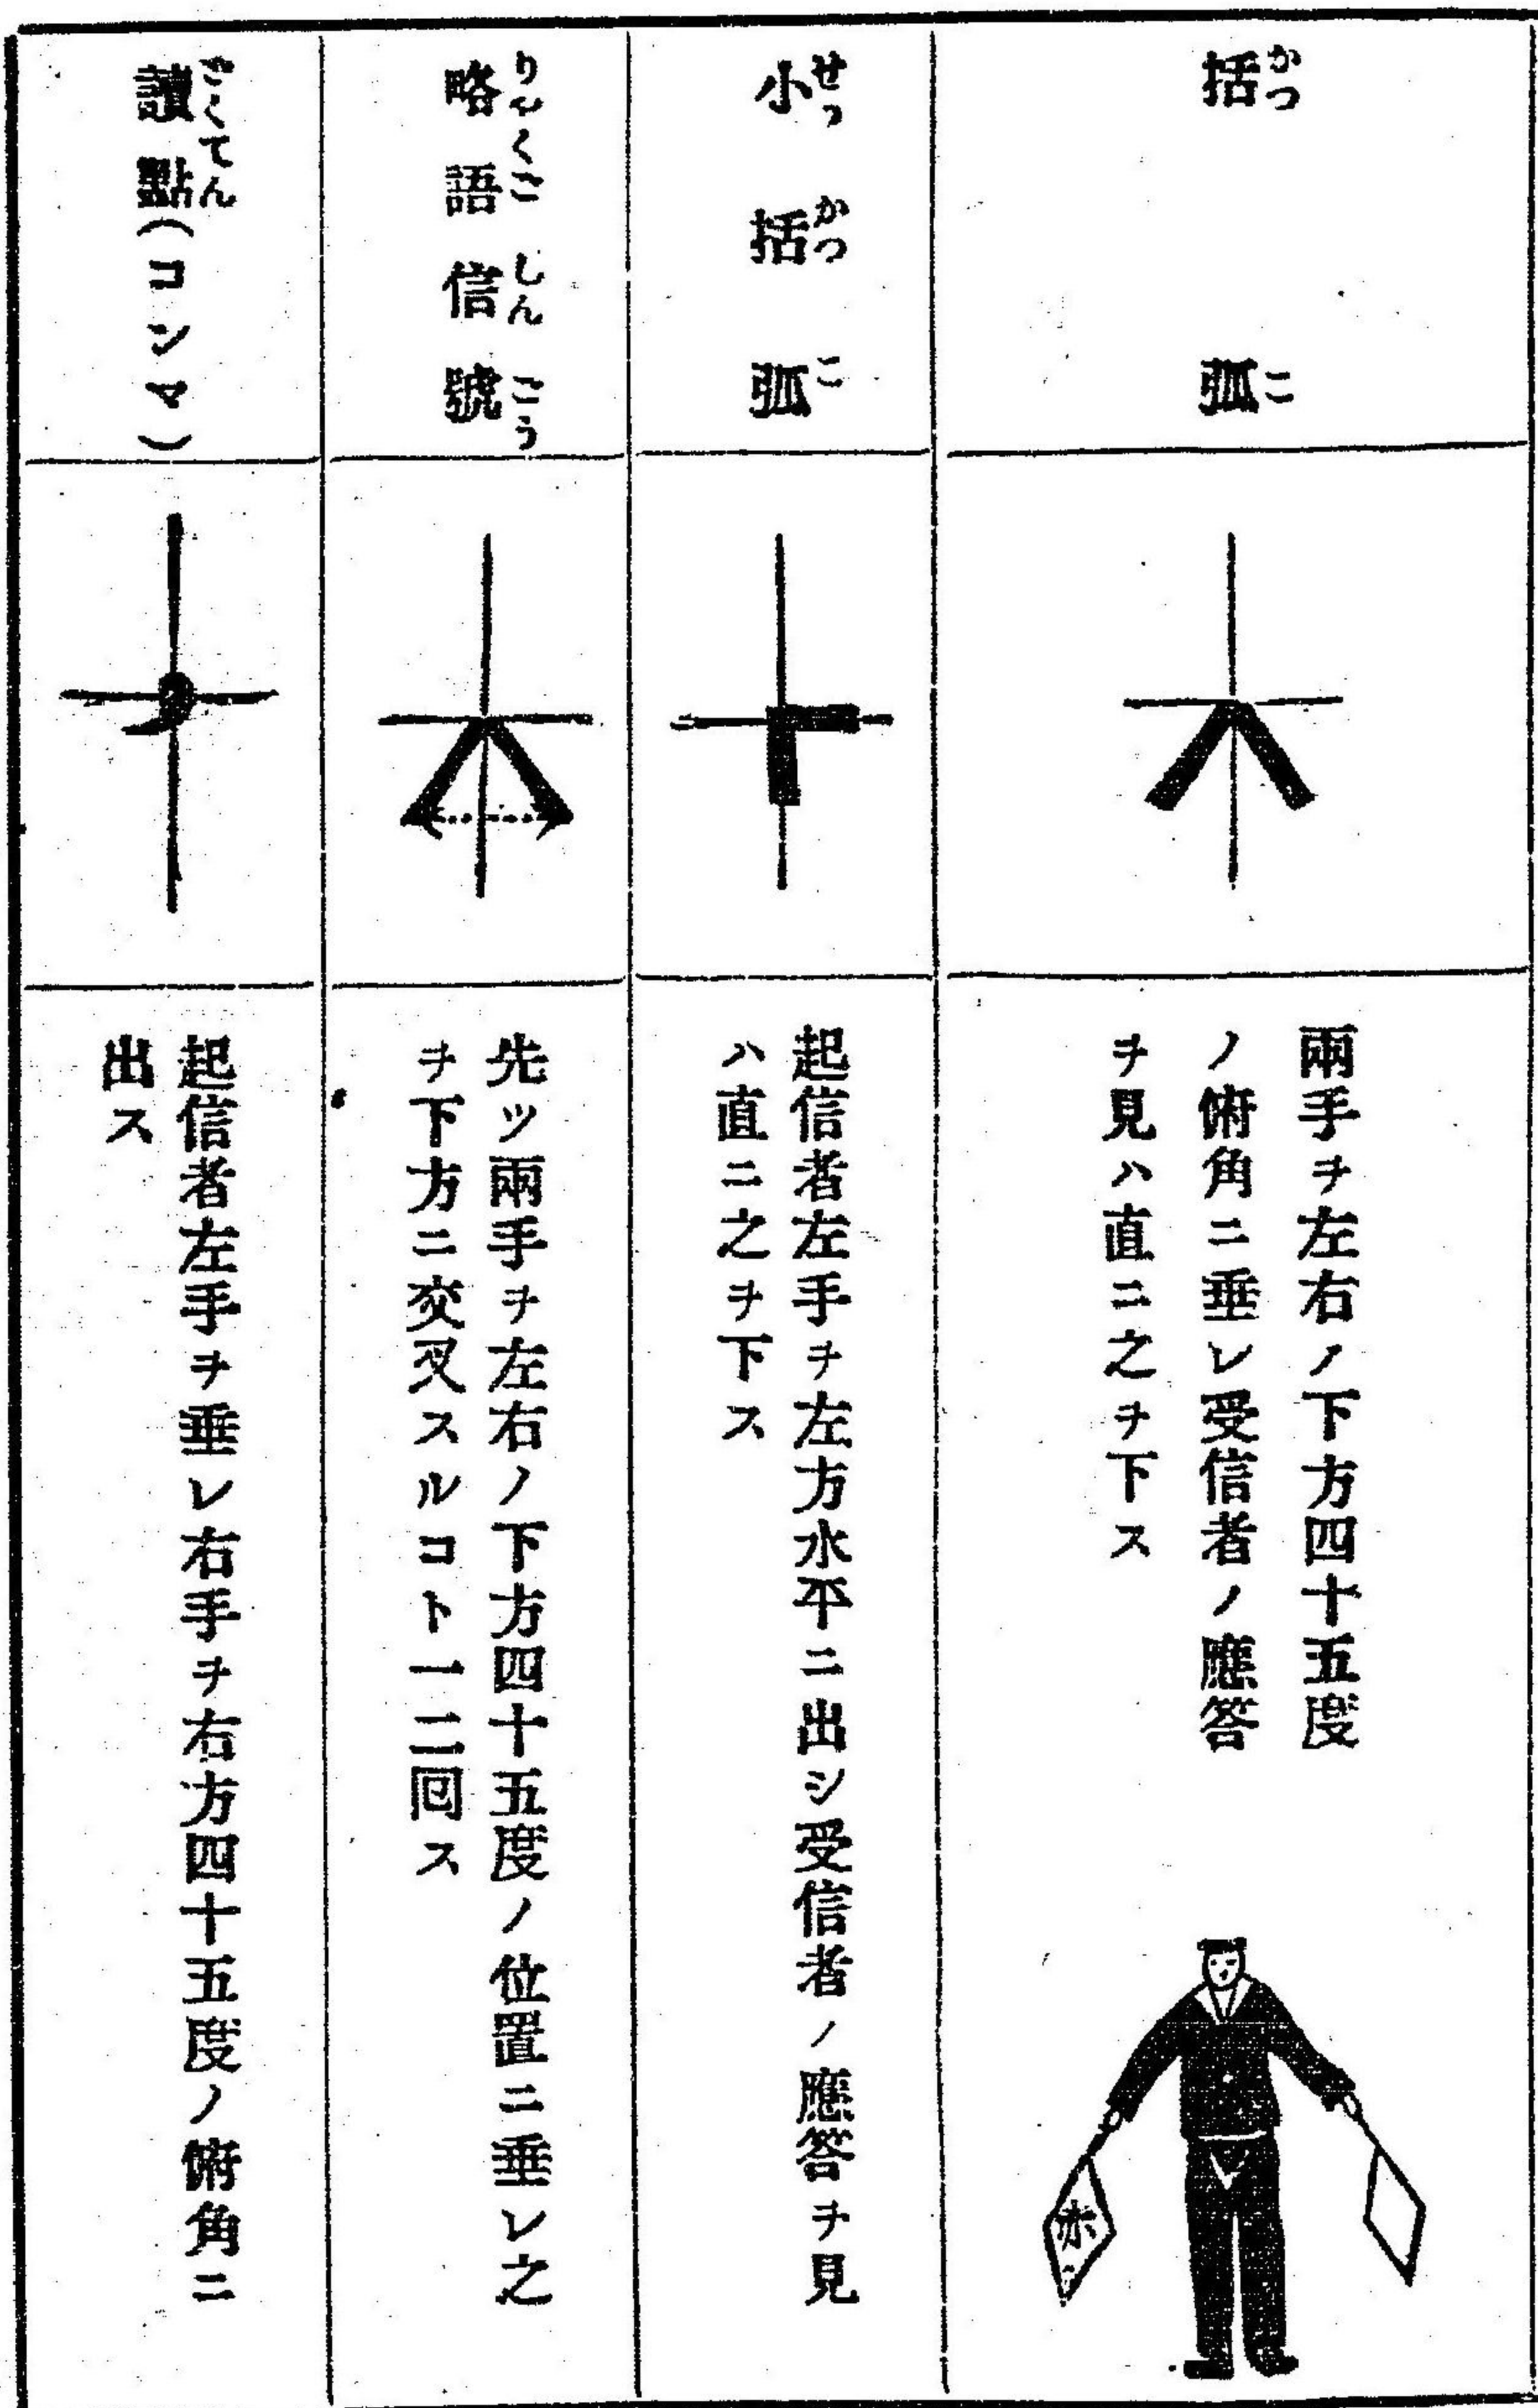 括弧
かつこ
兩手ヲ左右ノ下方四十五度
ノ俯角ニ垂レ受信者ノ應答
ヲ見ハ直ニ之ヲ下ス
赤
小括弧
せつかつこ
起信者左手ヲ左方水平ニ出シ受信者ノ應答ヲ見
ハ直ニ之ヲ下ス
略語信號
りやくごしんごう
先ツ兩手ヲ左右ノ下方四十五度ノ位置ニ垂レ之
ヲ下方ニ交叉スルコト一二回ス
讀點(コンマ)
とくてん
起信者左手ヲ垂レ右手ヲ右方四十五度ノ俯角ニ
出ス